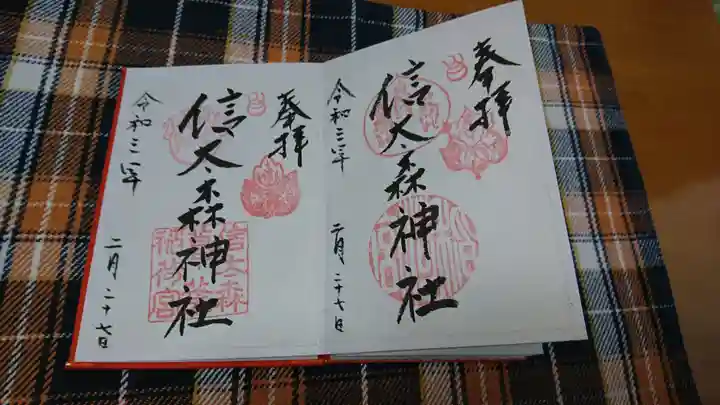 奉拝
信太森神社
令和三年
二月二十七日
奉拝
信太森神社
令和三年
二月二十七日